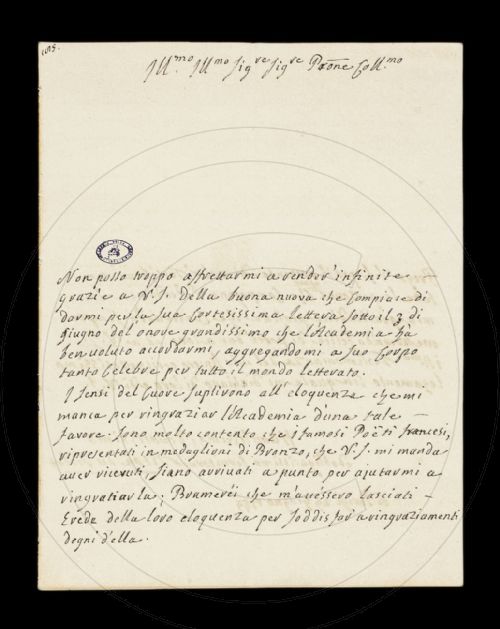 Ill.mo Ill.mo Sig.re Sig.re Prōne Coll.mo
Non posso troppo affrettarmi a render infinite
grazie a V. S. della buona nuova che compiace di
darmi per la sua cortesissima lettera sotto il 3 di
Giugno del onore grandissimo che l'Academia ha
ben voluto accordarmi, aggregandomi a suo Corpo
tanto celebre per tutto il mondo letterato.
I sensi del Cuore suplirono all'eloquenza che mi
manca per ringraziar l'Academia d'una tale
favore. Sono molto contento che i famosi Poëti francesi,
ripresentati in medaglioni di Bronzo, che V. S. mi manda
aver ricevuti, siano arrivati a punto per ajutarmi a
ringratiarla; Bramerëi che m'avessero lasciati
Erede della loro eloquenza per soddisfar a ringraziamenti
degni d'ella.